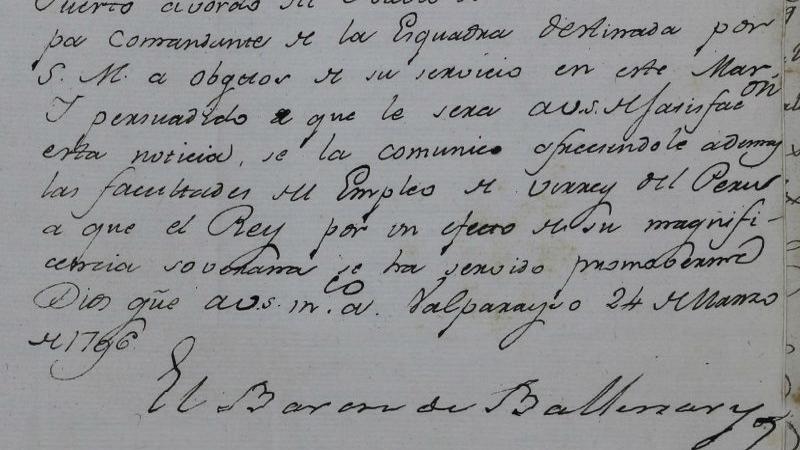 Puerto abordo del
pa Comandante de la Esquadra destinada por
S. M. a obgetos de su servicio en este Mar.
Y persuadido a que le sera a V.S. de satisfac.on
esta noticia, se la comunico ofreciendole ademas
las facultades del Empleo de Virrey del Peru
a que el Rey por un efecto de su magnifi-
cencia soverana se ha servido promoberme
Dios gũe a V.S. m.s a.s Valparayso 24 de Marzo
de 1796.
El Baron de Ballenary